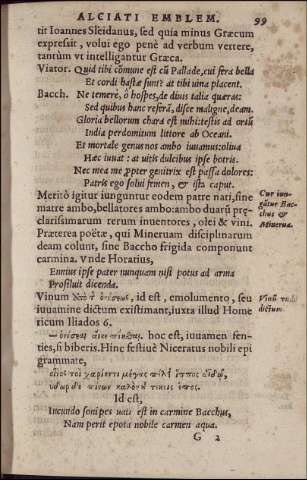 ALCIATI EMBLEM. 99
tit Ioannes Sleidanus, sed quia minus Græcum
expressit, volui ego penè ad verbum vertere,
tantùm vt intelligantur Græca.
Viator. Quid tibi cōmune est cū Pallade, cui fera bella
Et cordi hastæ sunt: at tibi uina placent.
Bacch. Ne temerè, ô hospes, de diuis talia quæras:
Sed quibus hanc referā, disce maligne, deam.
Gloria bellorum chara est mihi: testis ad ortū
India perdomitum littore ab Oceani.
Et mortale genus nos ambo iuuamus: oliua
Hæc iuuat: at uitis dulcibus ipse botris.
Nec mea me ꝓpter genitrix est passa dolores:
Patris ego solui femen, & ista caput.
Meritò igitur iunguntur eodem patre nati, sine
matre ambo, bellatores ambo: ambo duarū præ-
clarissimarum rerum inuentores, olei & vini.
Præterea poëtæ, qui Mineruam disciplinarum
deam colunt, sine Baccho frigida componunt
carmina. Vnde Horatius,
Cur iun-
gātur Bac-
chus &
Minerua.
Ennius ipse pater nunquam nisi potus ad arma
Prosiluit dicenda.
Vinum id est, emolumento, seu
iuuamine dictum existimant, iuxta illud Home
ricum Iliados 6.
Vinū
dictum.
hoc est, iuuamen sen-
ties, si biberis. Hinc festiuè Niceratus nobili epi
grammate,
Id est,
Iucundo sonipes uati est in carmine Bacchus,
Nam perit epota nobile carmen aqua.
G 2